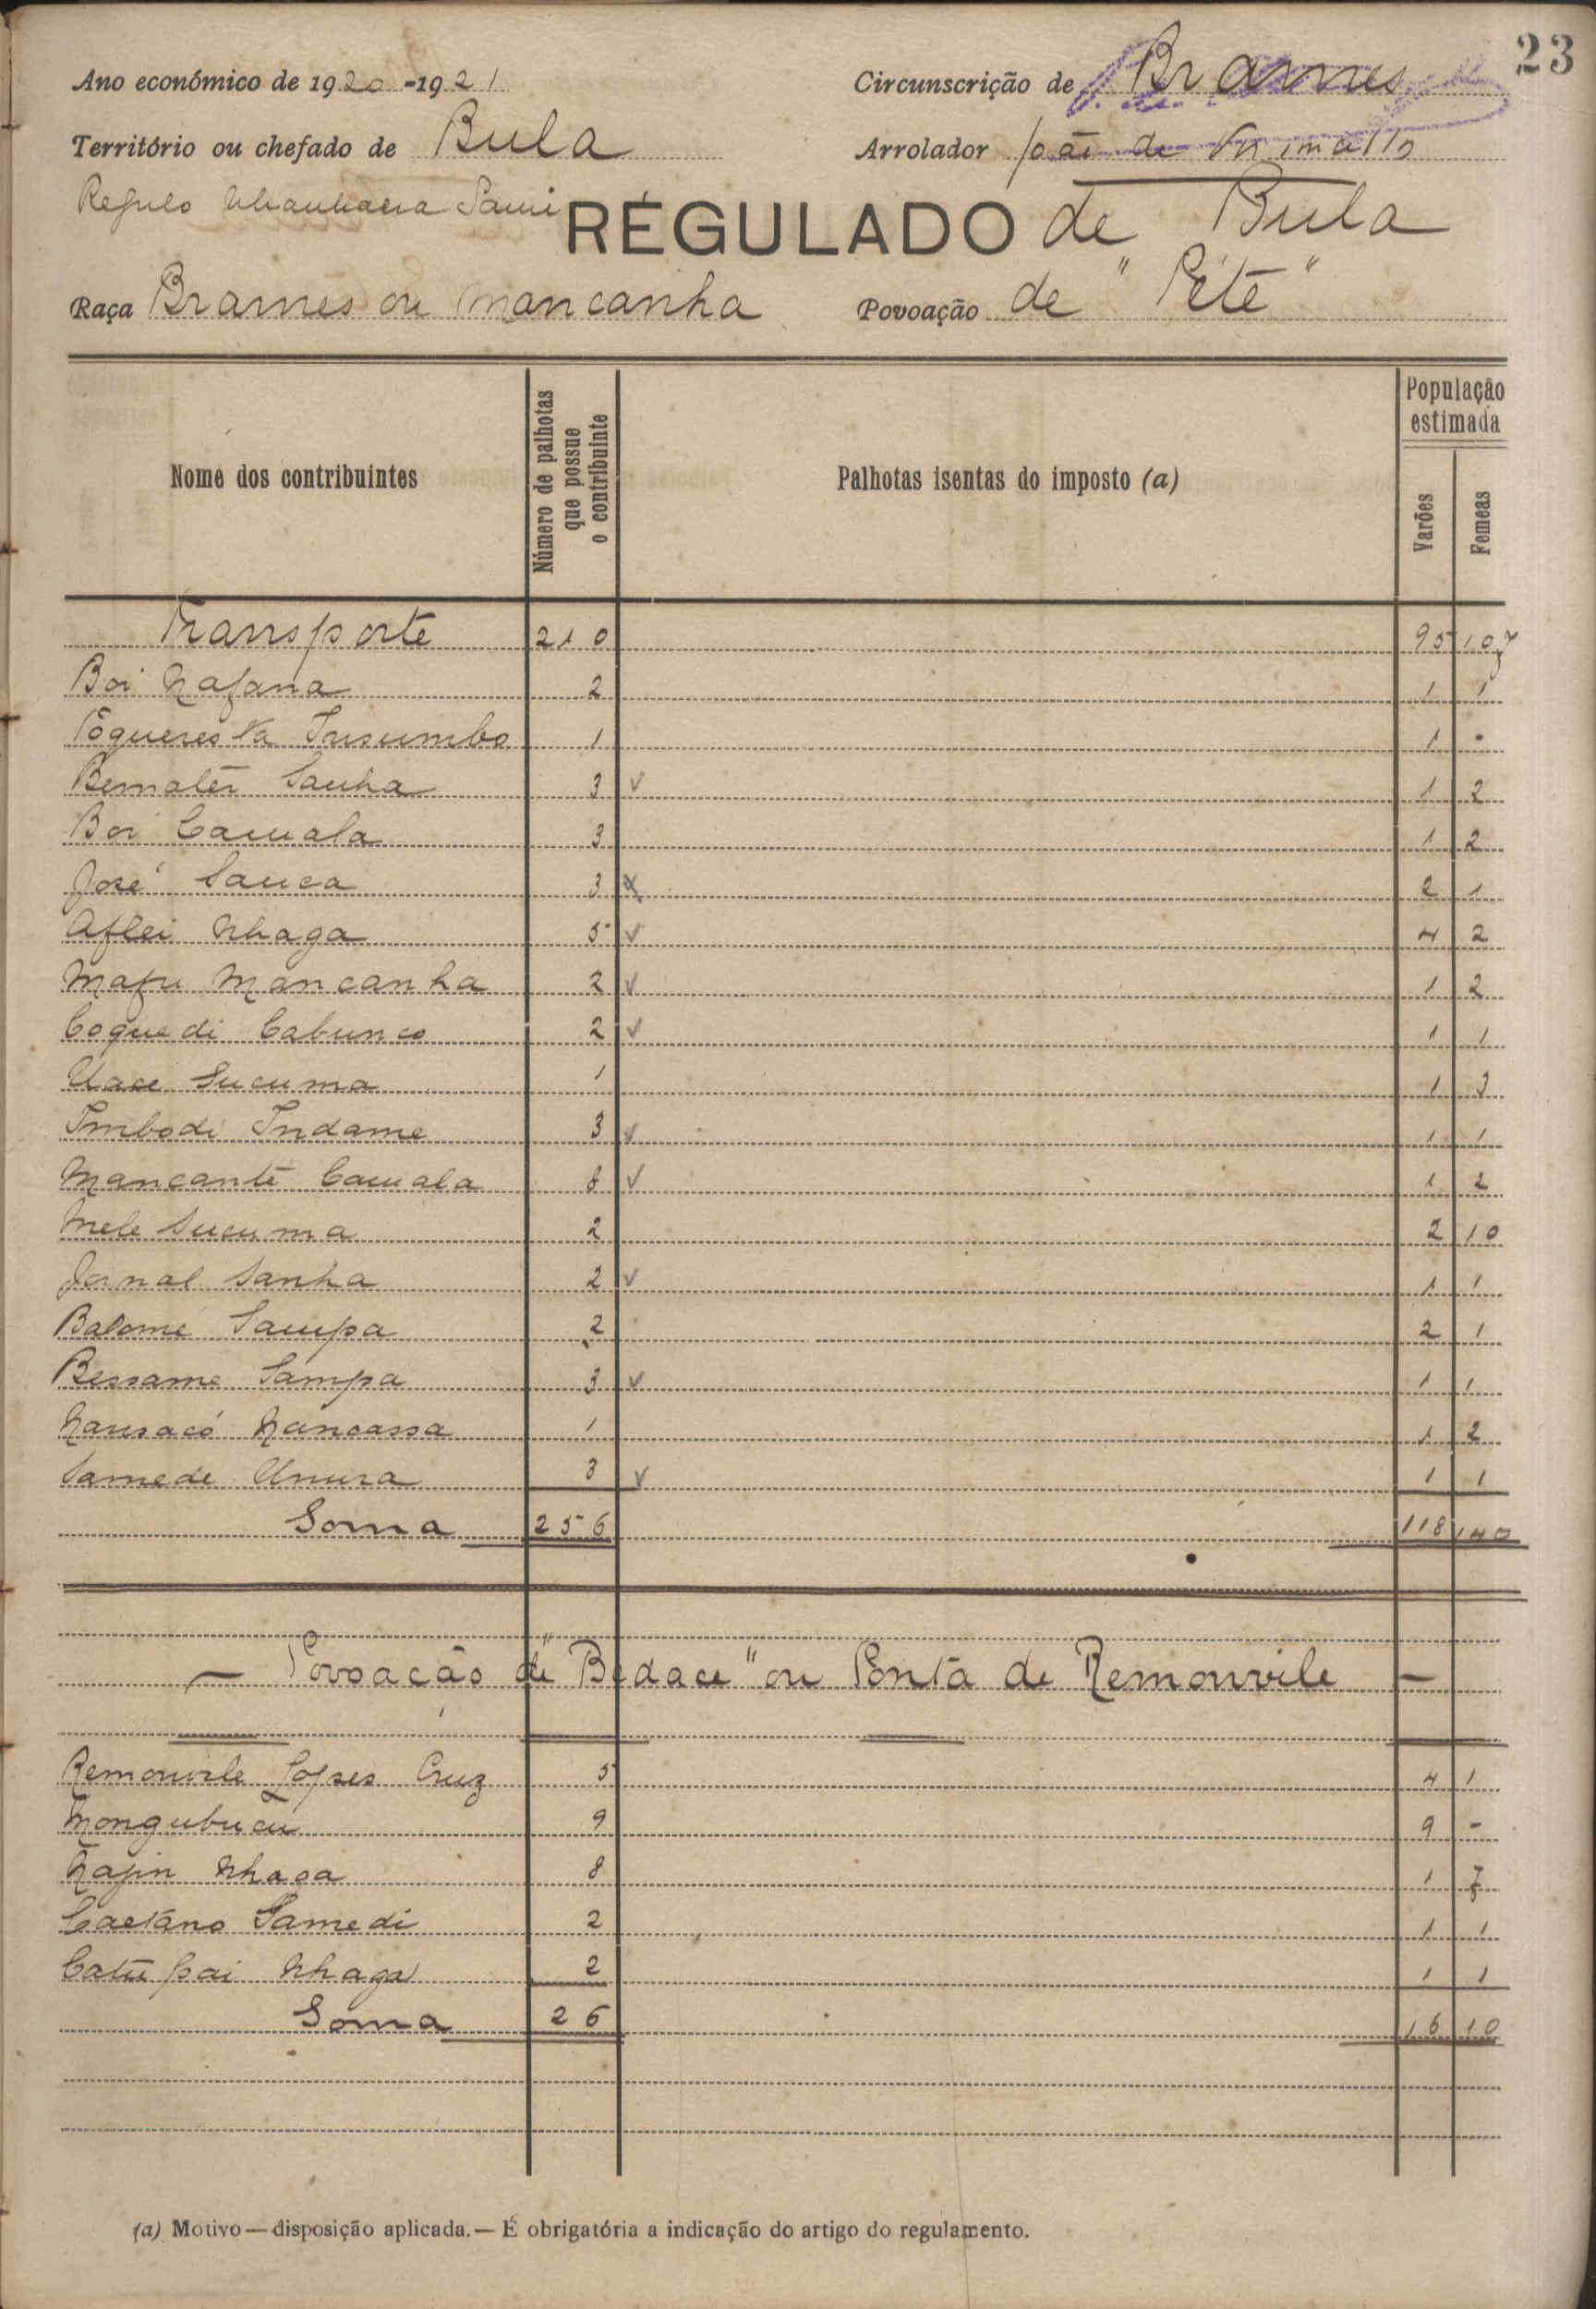 23
Ano económico de 1920-1921 Circunscrição de Brames
Território ou chefado de Bula Arrolador João de
Regulo
RÉGULADO de Bula
Raça Brames ou mancanha Povoação de "Pété"
Nome dos contribuintes Número de palhotas que possue o contribuinte Palhotas isentas do imposto (a) População estimada Varões Femeas
Transporte 210 95 107
Boi Nafana 2 1 1
1 1 -
Bematér Sanha 3 v 1 2
Boi Camala 3 1 2
José Sanca 3 x 2 1
Aflei Nhaga 5 v 4 2
Mafu Mancanha 2 v 1 2
Coquedi Cabunco 2 v 1 1
Uace Sucuma 1 1 3
Imbodi Indame 3 v 1 1
Mancanté Camala 8 v 1 2
Mele Sucuma 2 2 10
Jornal Sanha 2 v 1 1
Balomé Sampa 2 2 1
Bessame Sampa 3 v 1 1
Nansacó Nancassa 1 1 2
Samede 3 v 1 1
Soma 256 118 140
— Povoação de "Bedace" ou Ponta de Remonvile —
Remonvile Lopes Cruz 5 4 1
Mongubucu 9 9 -
Nafin Nhaga 8 1 7
Caetano Samedi 2 1 1
Catupai Nhaga 2 1 1
Soma 26 16 10
(a) Motivo — disposição aplicada. — É obrigatória a indicação do artigo do regulamento.